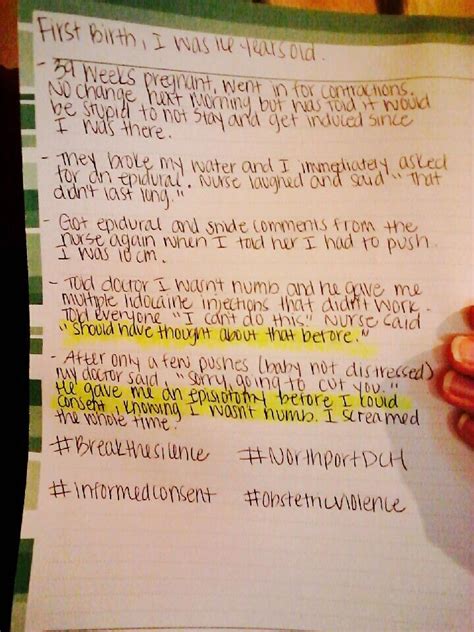 First Birth, I was 16 years old.
- 39 Weeks pregnant, went in for contractions.
No change next morning but was told it would
be stupid to not stay and get induced since
I was there.
- They broke my water and I immediately asked
for an epidural. Nurse laughed and said "That
didn't last long."
- Got epidural and snide comments from the
nurse again when I told her I had to push.
I was 10 cm.
- Told doctor I wasn't numb and he gave me
multiple lidocaine injections that didn't work.
Told everyone "I can't do this." Nurse said
"should have thought about that before."
- After only a few pushes (baby not distressed)
my doctor said, "Sorry, going to cut you."
He gave me an episiotomy before I could
consent, knowing I wasn't numb. I screamed
the whole time.
#Breakthesilence #NorthportDCH
#informedconsent #obstetricviolence